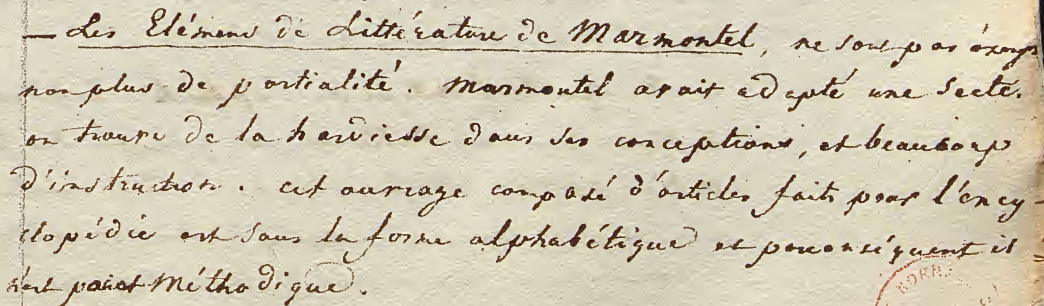 — Les Elémens de Littérature de Marmontel, ne sont pas exempts
non plus de partialité. Marmontel avait adopté une secte.
on trouve de la hardiesse dans ses conceptions, et beaucoup
d'instruction. cet ouvrage composé d'articles faits pour l'ency-
clopédie est sous la forme alphabétique et parconséquent il
n'est point méthodique.